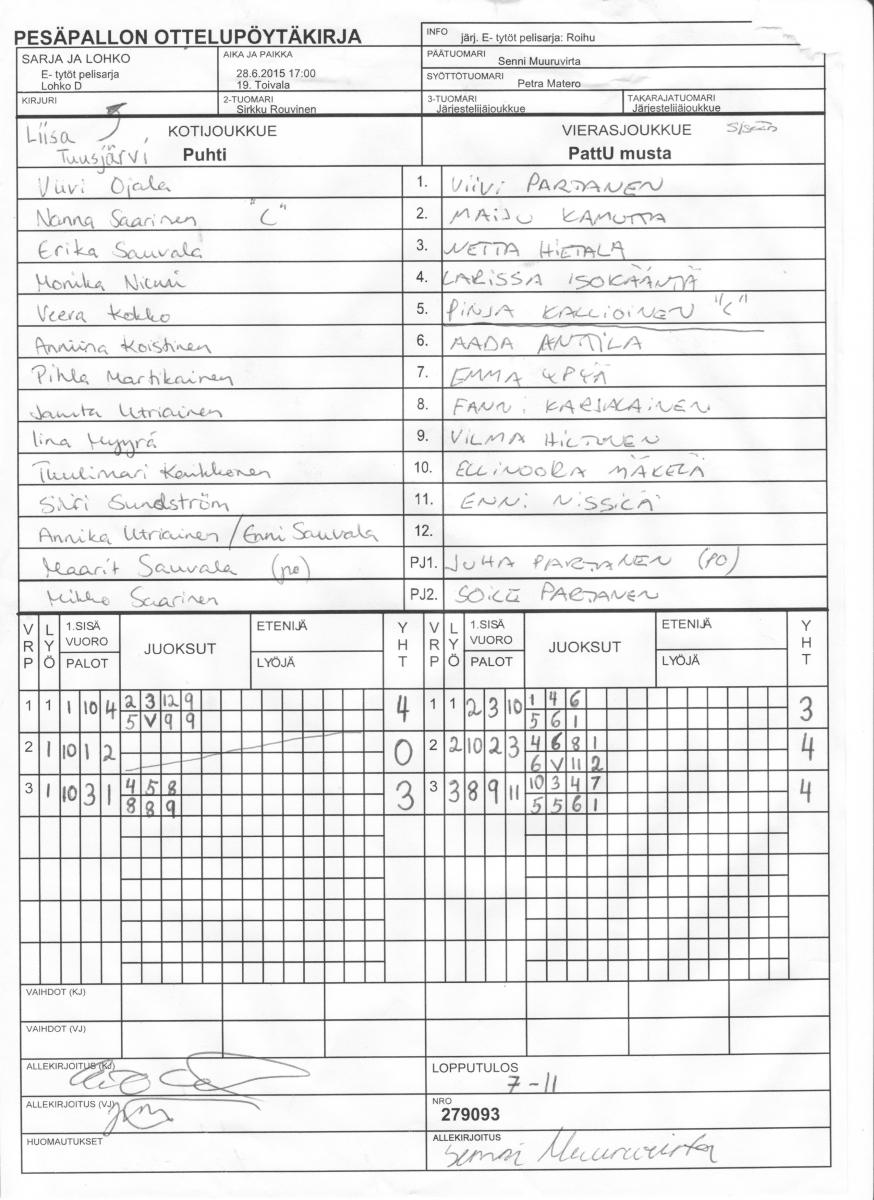 PESÄPALLON OTTELUPÖYTÄKIRJA
INFO järj. E- tytöt pelisarja: Roihu
SARJA JA LOHKO
E- tytöt pelisarja
Lohko D
AIKA JA PAIKKA
28.6.2015 17:00
19. Toivala
PÄÄTUOMARI
Senni Muuruvirta
SYÖTTÖTUOMARI
Petra Matero
KIRJURI
2-TUOMARI
Sirkku Rouvinen
3-TUOMARI
Järjestelijäjoukkue
TAKARAJATUOMARI
Järjestelijäjoukkue
Liisa
Tuusjärvi
KOTIJOUKKUE
Puhti
VIERASJOUKKUE
PattU musta
Viivi Ojala 1. VIIVI PARTANEN
Nanna Saarinen "C" 2. MAIJU KAMUTTA
Erika Sauvala 3. NETTA HIETALA
Monika Niemi 4. LARISSA ISOKÄÄNTÄ
Veera Kokko 5. PINJA KALLIOINEN "C"
Anniina Koistinen 6. AADA ANTTILA
Pihla Martikainen 7. EMMA YPYÄ
Jamita Utriainen 8. FANNI KARJALAINEN
Iina Myyrä 9. VILMA HILTUNEN
Tuulimari Konkkonen 10. ELLINOORA MÄKELÄ
Siiri Sundström 11. ENNI NISSILÄ
Annika Utriainen / Enni Sauvala 12.
Maarit Sauvala (po) PJ1. JUHA PARTANEN (PO)
Mikko Saarinen PJ2. SOILI PARTANEN
VRP LYÖ 1.SISÄ VUORO PALOT JUOKSUT ETENIJÄ LYÖJÄ YHT VRP LYÖ 1.SISÄ VUORO PALOT JUOKSUT ETENIJÄ LYÖJÄ YHT
1 1 1 10 4 2 3 12 9 4 1 1 2 3 10 1 4 6 3
5 V 9 9 5 6 1
2 1 10 1 2 0 2 2 10 2 3 4 6 8 1 4
6 V 11 2
3 1 10 3 1 4 5 8 3 3 3 8 9 11 10 3 4 7 4
8 8 9 5 5 6 1
VAIHDOT (KJ)
VAIHDOT (VJ)
ALLEKIRJOITUS (KJ)
LOPPUTULOS
7 - 11
ALLEKIRJOITUS (VJ)
NRO
279093
HUOMAUTUKSET
ALLEKIRJOITUS
Senni Muuruvirta